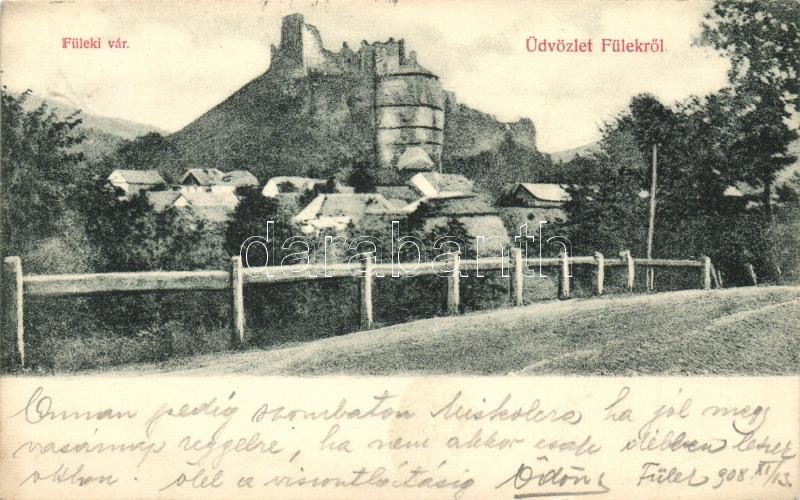 Füleki vár.
Üdvözlet Fülekről.
darabanth
Onnan pedig szombaton Miskolcra ha jól megy
vasárnap reggelre, ha nem akkor csak délben leszek
otthon. ölel a viszontlátásig Ödön Fülek 908 XI/13.